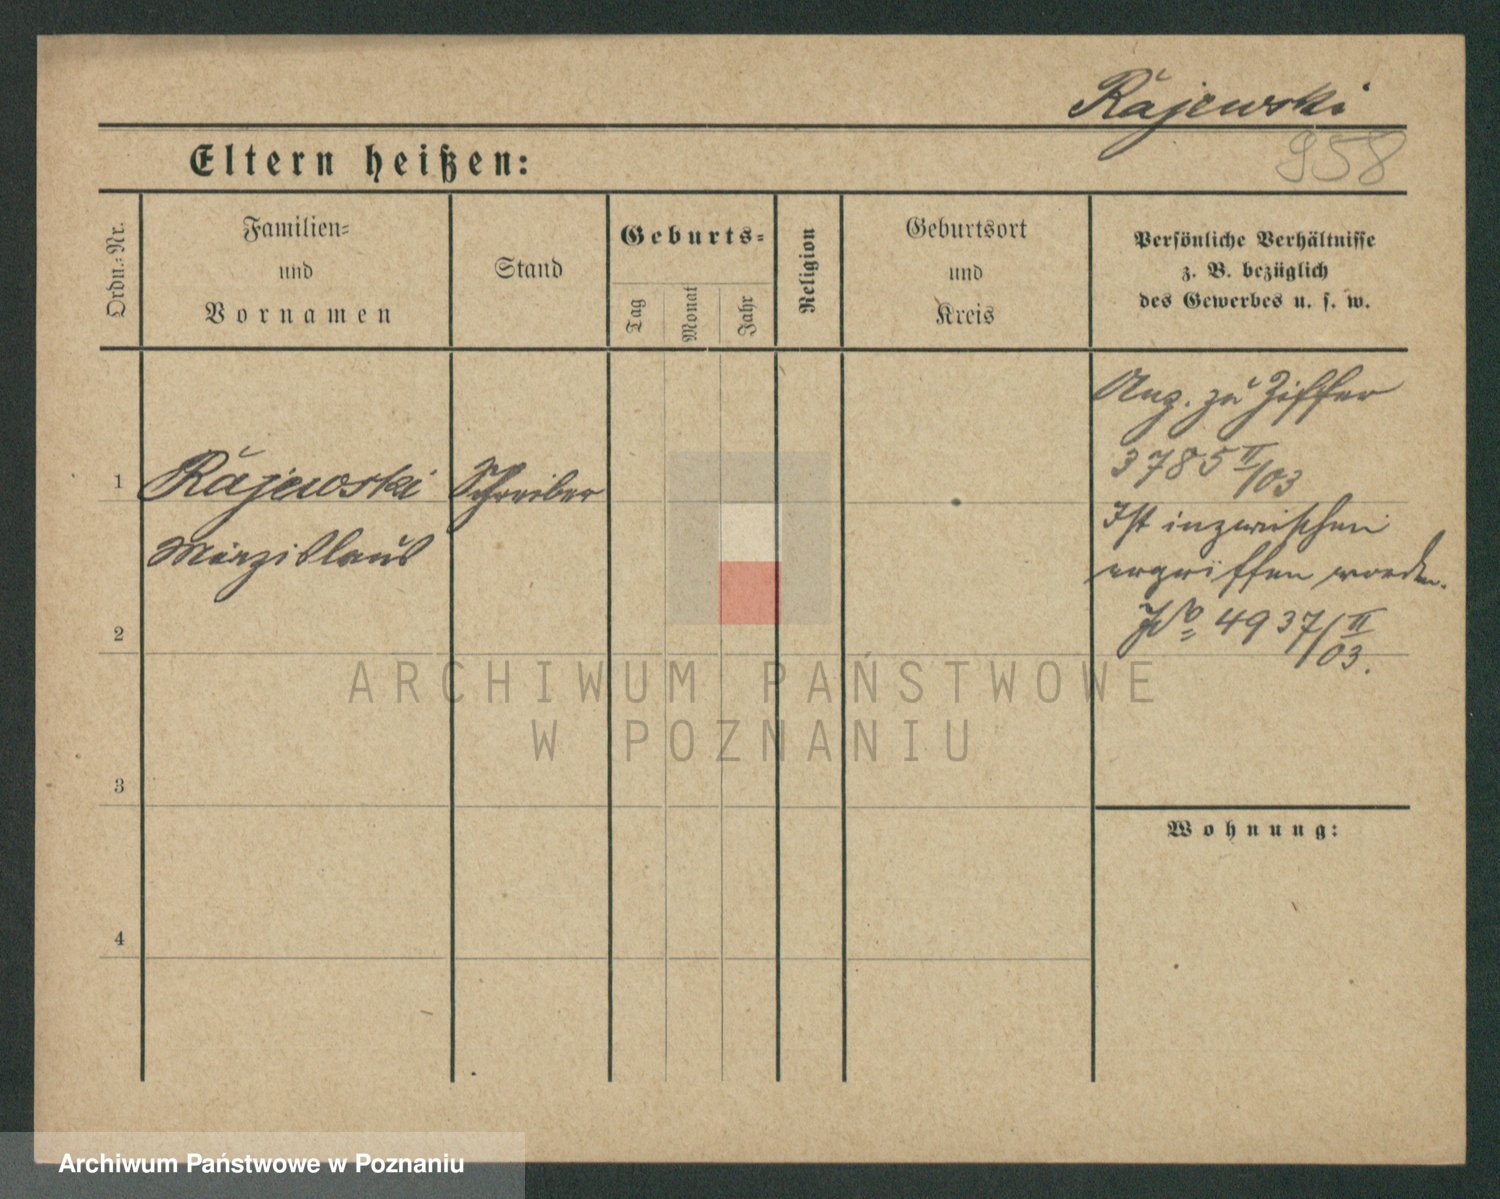 Rajewski
958
Eltern heißen:
Ordn.-Nr.
Familien-
und
Vornamen
Stand
Geburts-
Tag
Monat
Jahr
Religion
Geburtsort
und
Kreis
Persönliche Verhältnisse
z. B. bezüglich
des Gewerbes u. s. w.
1
Rajewski
Schreiber
Mieczislaus
2
3
4
Ang. zu Ziffer
3785 II/03
Ist inzwischen
ergriffen worden.
No 4937/II
03.
Wohnung:
ARCHIWUM PAŃSTWOWE
W POZNANIU
Archiwum Państwowe w Poznaniu